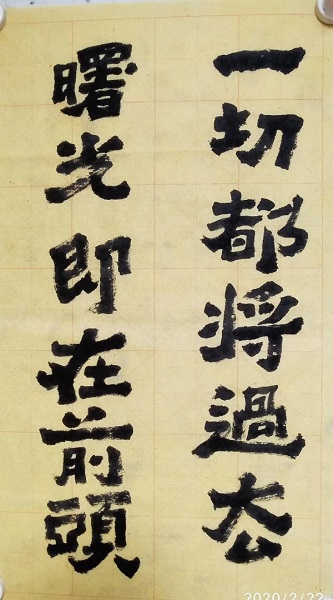 一切都将過去
曙光即在前頭
2020/2/22